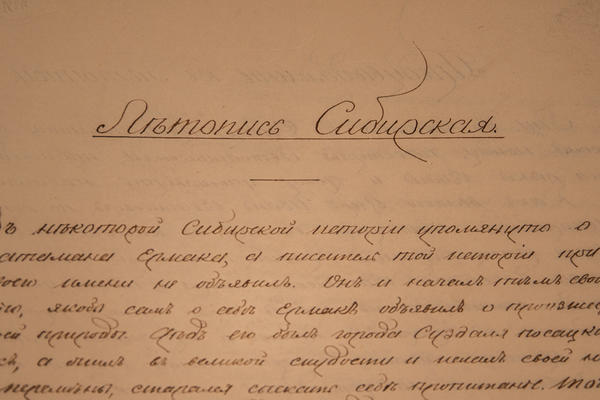 Лѣтопись Сибирская.
Въ нѣкоторой Сибирской исторіи упомянуто о
атамана Ермака, а писатель той исторіи при
своего имени не объявилъ. Онъ и началъ тѣмъ свой
якобы самъ о себѣ Ермакъ объявилъ о
природы. Дѣдъ его былъ города Суздаля посадск
а жилъ въ великой скудости и искалъ своей
перемѣны, старался сыскать себѣ пропитаніе.